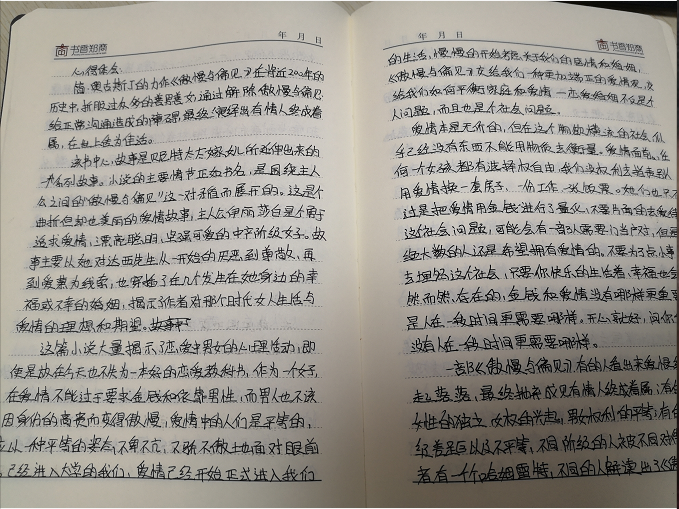 年 月 日
书香郑商
心得体会:
简·奥古斯丁的力作《傲慢与偏见》在将近200年的
历史中,折服过众多的善男善女,通过解除傲慢与偏见
给正常沟通造成的障碍,最终演绎出有情人终成眷
属,在世上传为佳话。
该书中心,故事是以贝特太太嫁女儿所延伸出来的
一系列故事。小说的主要情节正如书名,是围绕主人
公之间的《傲慢与偏见》这一对矛盾而展开的。这是个
曲折但却也美丽的爱情故事,主人公伊丽莎白是个勇于
追求爱情,漂亮聪明,坚强可爱的中产阶级女子。故
事主要从她对达西先生从一开始的厌恶到尊敬,再
到爱慕为线索,也穿插了在几个发生在她身边的幸
福或不幸的婚姻,揭示了作者对那个时代女人生活与
爱情的理想和期望。
这篇小说大量揭示了恋爱中男女的心理活动,即
便是放在今天也不失为一本好的恋爱教科书,作为一个女子,
在爱情不能过于要求金钱和依靠男性,而男人也不该
因身份的高贵而变得傲慢,爱情中的人们是平等的,
以一种平等的姿态,不卑不亢,不骄不傲土也面对眼前
已经进入大学的我们,爱情已经开始正式进入我们
年 月 日
书香郑商
的生活,慢慢的开始考虑关于我们的感情和婚姻,
《傲慢与偏见》交给我们一种更加端正的爱情观,教
给我们如何平衡家庭和爱情 一恋爱婚姻不仅是个
人问题,而且也是个社会问题。
爱情本是无价的,但在这个物欲横流的社会,似
乎已经没有东西不能用物质去衡量,爱情面前,任
何一个女孩都有选择权自由,我们没权利去指责别人
用爱情换一套房子、一份工作、一张饭票。她们也只不
过是把爱情用金钱进行了量化,不要片面的去爱
这个社会问题,可能会有一部分人需要门当户对,但是
绝大数的人还是希望拥有爱情的。不要为了点小事
去埋怨这个社会,只要你快乐的生活着,幸福也会
然而然,存在的,金钱和爱情没有哪样更重要
是人在一段时间更需要哪样。开心就好,问你
没有人在一段时间更需要哪样。
一部《傲慢与偏见》有的人看出来爱情经
起起落落,最终抛弃成见有情人终成眷属;有
女性的独立,女权的兴起,男女权利的平等;有
级差距以及不平等,不同阶级的人被不同对待
者有一个哈姆雷特,不同的人解读出了《傲